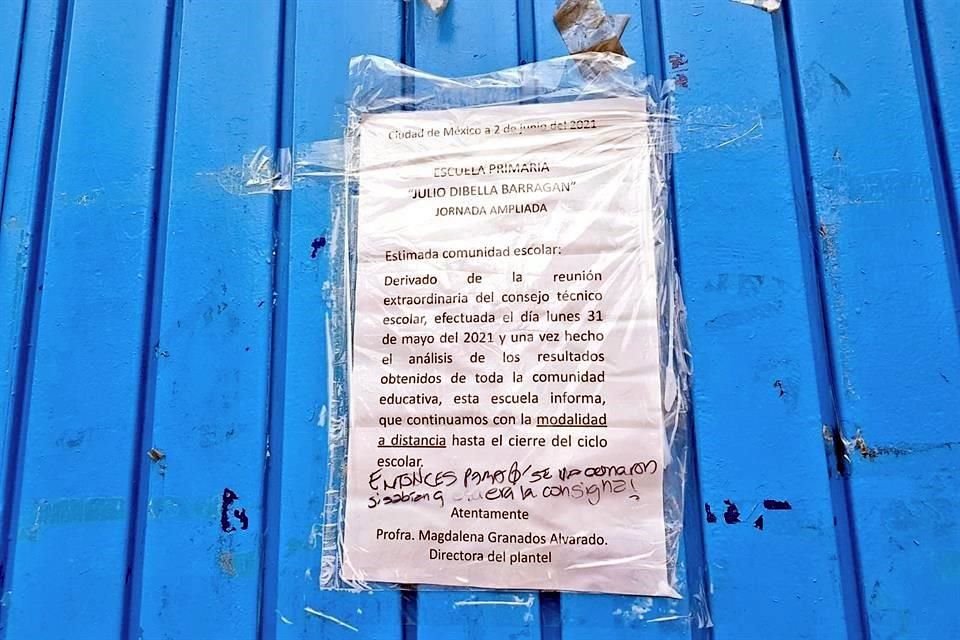 Ciudad de México a 2 de junio del 2021
ESCUELA PRIMARIA
"JULIO DIBELLA BARRAGAN"
JORNADA AMPLIADA
Estimada comunidad escolar:
Derivado de la reunión
extraordinaria del consejo técnico
escolar, efectuada el día lunes 31
de mayo del 2021 y una vez hecho
el análisis de los resultados
obtenidos de toda la comunidad
educativa, esta escuela informa,
que continuamos con la modalidad
a distancia hasta el cierre del ciclo
escolar.
ENTONCES PARA Q' SE VACUNARON
si sabian q era la consigna!
Atentamente
Profra. Magdalena Granados Alvarado.
Directora del plantel